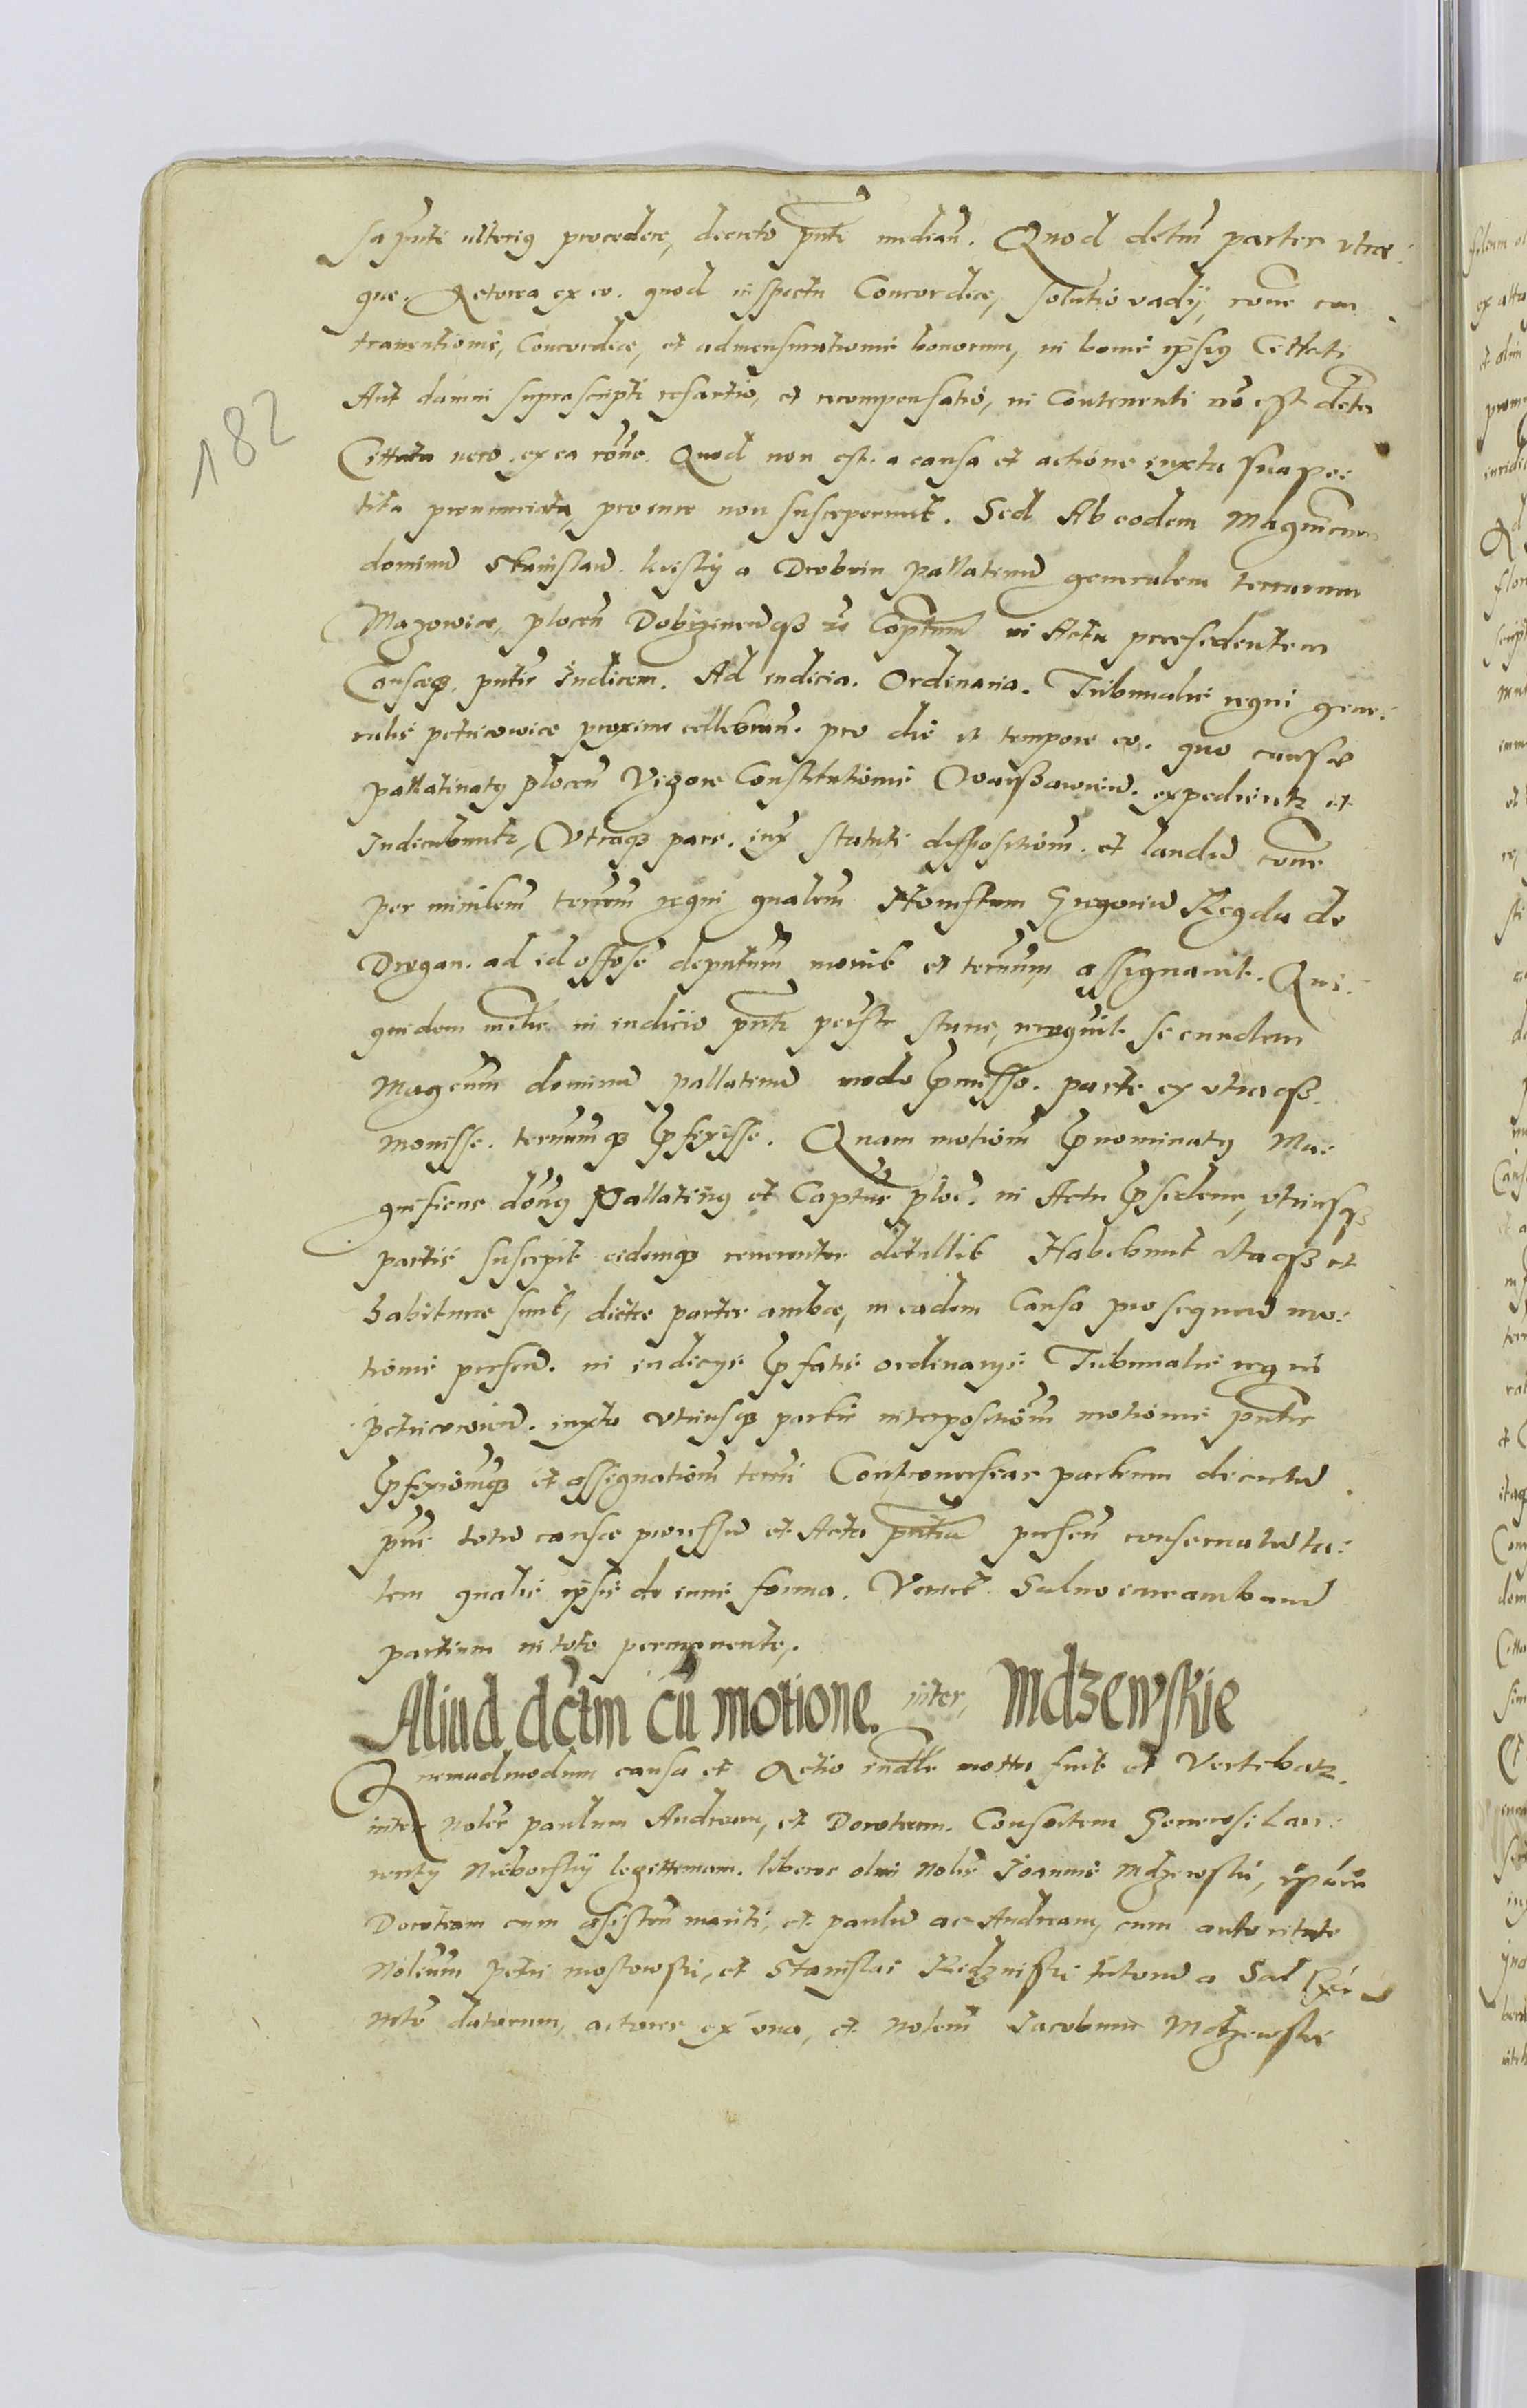 sa pnti ulterius procedere, decreto pnti median. Quod detm partes utræ-
que. Actorea ex eo. quod inspectu Concordiæ, solutio vadÿ, rone con
traventionis, Concordiæ, et admensurationis bonorum, in bonis ipsius Cittati
Aut damni suprascripti resartio, et recompensatio, in Contenenti no est deta
Cittata vero ex ea rone. Quod non est. a causa et actione iuxta sua pe:
tita pronunciata, pro iure non susceperunt. Sed Ab eodem Magnificum
dominu Stanislau krisky a Drobnin pallatinu generalem terrarum
Mazowiæ, plocen Dobrzinenqß Captm in Actu præsedentem
Causæq3 pntis Iudicem. Ad iudicia. Ordinaria. Tribunalis regni gene:
ralis petricoviæ proxime cellebran. pro die et tempore eo. quo causæ
pallatinatus plocen Vigore Constitutionis Warßavien. expedientr et
Iudicabuntr, Utraq3 pars. iux statuti dispositiom. et laudu rone
per minilem terrem regni gnalem Honestum Gregoriu Regda de
Drogan. ad id offose deputum movit et termum assignavit. Qui-
quidem mtis in iudicio pnti perste stans, recognvit se eundem
Magcum dominu pallatinu modo pmisso. parte ex utraqß.
monisse. termumq3 pfixisse. Quam motiom pnominatus Ma:
gnificus donus Pallatinus et Captus ploc. in Actu psedens, utriusqß
partis suscepit eidemq3 reverenter detullit Habebunt itaqß et
habituræ sunt, dictæ partes ambæ, in eadem Causa prosequen mo:
tionis presen. in iudicys pfatis ordinarys Tribunalis regni
petricovien. iuxta utriusq3 partis interpositiom motionis pntis
pfixiomq3 et assignatiom termi Controversias partium decretu
pmi totu causæ processu et Acta pntia presen conservatu ta:
tem gnalis ipsis de iuris forma. Venict Salvo iure ambaru
partium in toto permanente,.
Aliud dctm cu motione. inter, Mdzewskie
Quemadmodum causa et Actio indle motta fuit et Vertebatr.
inter Noles paulum Andream, et Doroteam. Consortem Generosi Lau:
renty Nieborsky legittemam. liberos olim Nolis Joannis Mdzewski, ipsa
Doroteam cum assisten mariti, et paulu ac Andream, cum autoritate
Nolium petri mostowski, et Stanislai Kidzniski tutoru a Sal
Mte datorum, actores ex una, et Nolem Jacobum Mdzewski
182